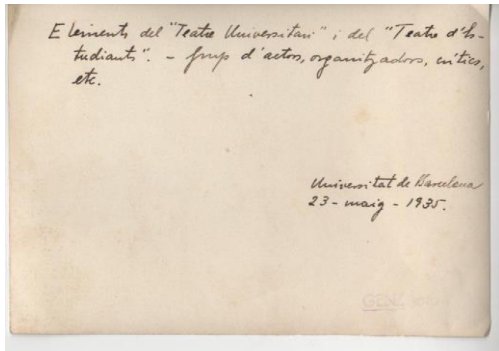 Elements del "Teatre Universitari" i del "Teatre d'Es-
tudiants". - Grup d'actors, organitzadors, crítics,
etc.
Universitat de Barcelona
23 - maig - 1935.